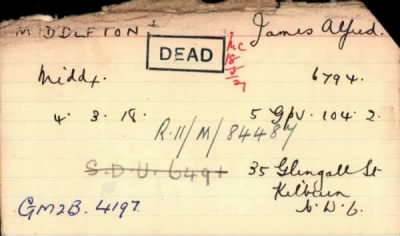 MIDDLETON James Alfred.
DEAD
Middx. 6794.
4. 3. 18. 5 Gpv. 104. 2.
R.11/M/84487
S.D.U. 649+ 35 Glengall St
Kilburn
N.W.6.
GM2B. 4197